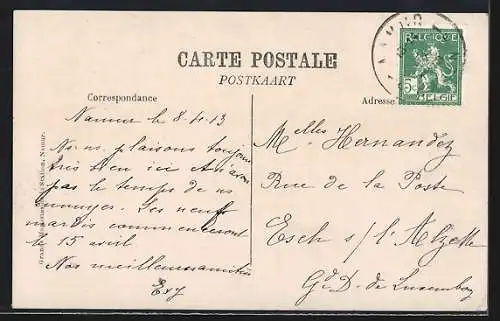 CARTE POSTALE
POSTKAART
NAMUR
BELGIQUE
5c
BELGIË
Correspondance
Adresse
Namur le 8-4-13
Ns ns plaisons toujours
très bien ici et n'avons
pas le temps de ns
ennuyer. Les neuf
mardis commenceront
le 15 avril
Nos meilleures amitiés
E&J
Melles Hernandez
Rue de la Poste
Esch s/ l'Alzette
Gd D. de Luxembourg
Namur.